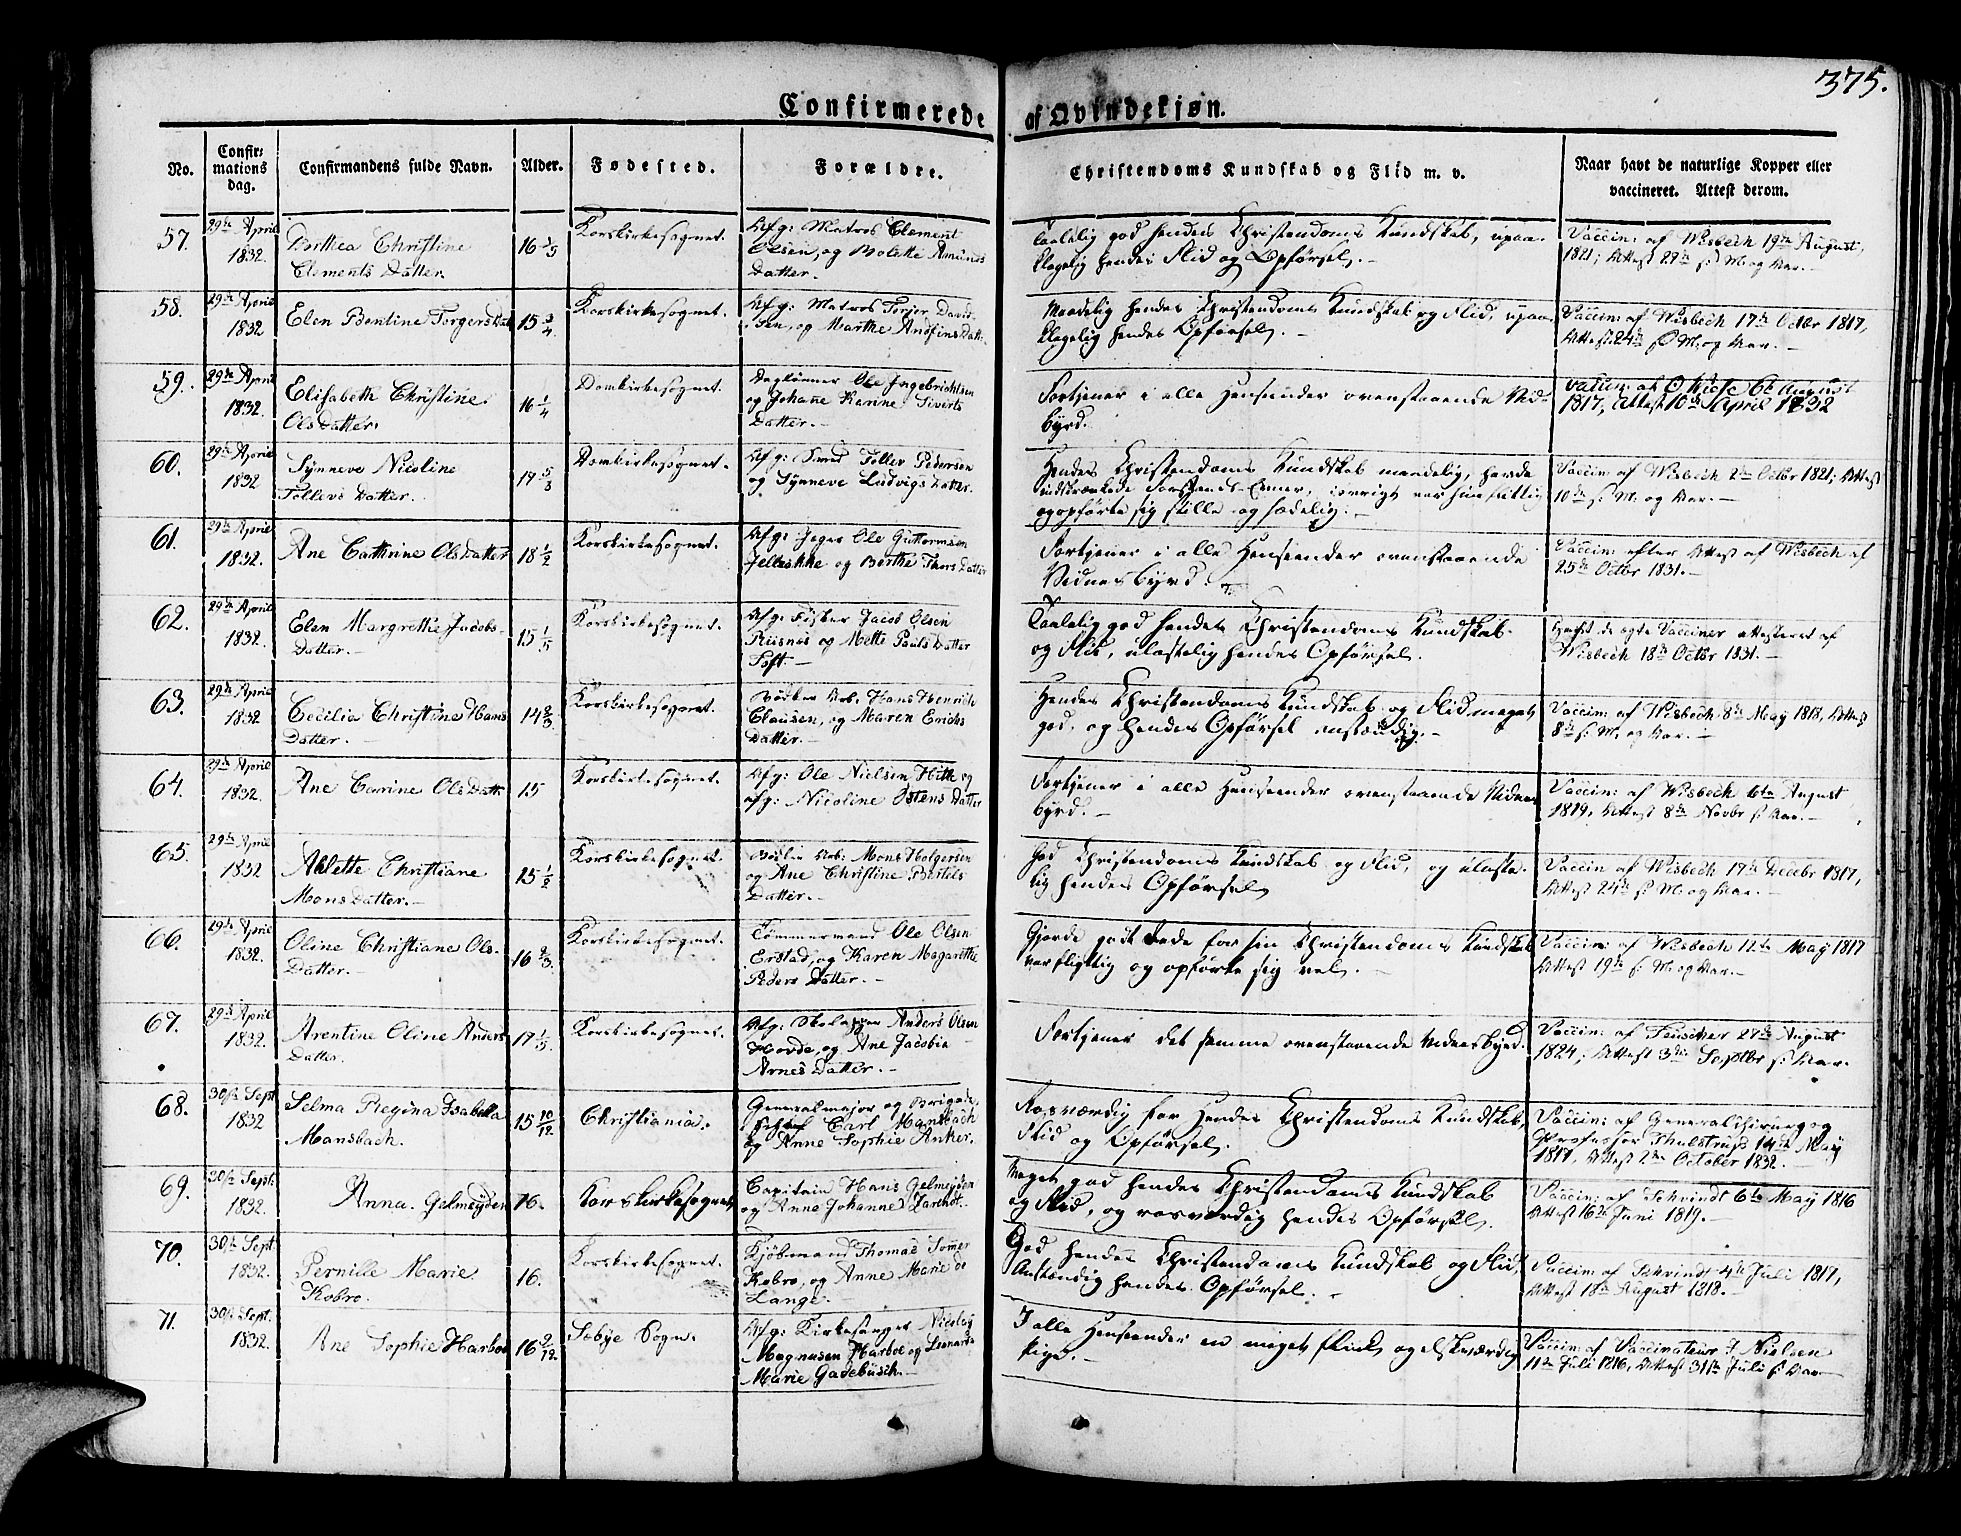 375.
Confirmerede af Qvindekjøn.
No. Confirmations dag. Confirmandens fulde Navn. Alder. Fødested. Forældre. Christendoms Kundskab og Flid m. v. Naar havt de naturlige Kopper eller vaccineret. Attest derom.
57. 29de April 1832. Dorthea Christine Clements Datter. 16 Korskirkesognet. Afg: Matros Clement Olsen, og Bolette Amunds Datter. Taalelig god hendes Christendoms Kundskab, upaaklagelig hendes Flid og Opførsel. Vaccin: af Wisbech 19de August, 1821; Attest 29de s: M. og Aar.
58. 29de April 1832 Elen Bentine Torgers Dat 15 3/4 Korskirkesognet. Afg: Matros Torjer Davidsen, og Marthe Andfins Datt: Maadelig hendes Christendoms Kundskab og Flid, upaaklagelig hendes Opførsel. Vaccin: af Wisbech 17de Octbr 1817, Attest 24de s: M. og Aar.
59. 29de April 1832. Elisabeth Christine Ols Datter. 16 1/4 Domkirkesognet. Daglønner Ole Ingebrichtsen og Johane Karine Siverts Datter. Fortjener i alle Henseender ovenstaaende Vidnesbyrd. Vaccin: af 6te August 1817, Attest 10de April 1832
60. 29de April 1832 Synneve Nicoline Tollevs Datter. 17 Domkirkesognet. Afg: Smed Tollev Pedersen og Synneve Ludvigs Datter. Hendes Christendoms Kundskab maadelig, havde indskrænkede Forstands-Evner, iøvrigt var hun flittig og opførte sig stille og sædelig. Vaccin af Wisbech 2den Octbr 1821; Attest 10de s: M. og Aar.
61. 29de April 1832. Ane Cathrine Ols Datter 18 1/2 Korskirkesognet. Afg: Ole Guttormsen og Berthe Thors Datter Fortjener i alle Henseender ovenstaaende Vidnesbyrd. Vaccin: efter Attest af Wisbech af 25de Octbr 1831.
62. 29de April 1832. Elen Margrethe Jacobs Datter. 15 1/5 Korskirkesognet. Afg: Fisker Jacob Olsen og Mette Pauls Datter Taalelig god hendes Christendoms Kundskab og Flid, ulastelig hendes Opførsel. Havt de ægte Vacciner attesteret af Wisbech 18de Octbr 1831.
63. 29de April 1832 Cecilia Christine Hans Datter. 14 2/3 Korskirkesognet. Bødker Hans Henrich Clausen, og Maren Erichs Datter. Hendes Christendoms Kundskab og Flid meget god, og hendes Opførsel anstændig. Vaccin: af Wisbech 8de May 1818, Attest 8de s: M. og Aar.
64. 29de April 1832. Ane Carine Ols Datt 15 Korskirkesognet. Afg: Ole Nielsen Hith og afg: Nicoline Østens Datter Fortjener i alle Henseender ovenstaaende Vidnesbyrd. Vaccin: af Wisbech 6te August 1819, Attest 8de Novbr s: Aar.
65. 29de April 1832 Ablette Christiane Mons Datter. 15 1/2 Korskirkesognet. Mons Holgersen og Ane Christine Bertels Datter. God Christendoms Kundskab og Flid, og ulastelig hendes Opførsel. Vaccin af Wisbech 17de Decebr 1817, Attest 24de s: M. og Aar.
66. 29de April 1832. Oline Christiane Ols Datter. 16 2/3. Korskirkesognet. Tømmermand Ole Olsen Erstad, og Karen Magarethe Peders Datter. Gjorde godt Rede for sin Christendoms Kundskab var flittig og opførte sig vel. Vaccin: af Wisbech 12te May 1817 Attest 19de s: M. og Aar.
67. 29de April 1832. Arentine Oline Anders Datter. 17 1/5. Korskirkesognet. Afg: Anders Olsen Hovde, og Ane Jacobie Arnes Datter. Fortjener det samme ovenstaaende Vidnesbyrd. Vaccin: af 27de August 1824, Attest 3die Septbr s: Aar.
68. 30te Sept 1832 Selma Regina Isabella Mansbach. 15 10/12. Christiania. Generalmajor og Brigade, Carl Mansbach og Anne Sophie Anker. Rosværdig for Hendes Christendoms Kundskab, Flid og Opførsel. Vaccin: af Generalchirurg og Professor Thulstrup 14de May 1817, Attest 2den October 1832.
69. 30te Sept: 1832. Anna Gelmeyden 16. Korskirkesognet Capitain Hans Gelmeyden og Anne Johanne Meget god hendes Christendoms Kundskab og Flid, og rosværdig hendes Opførsel. Vaccin: af Schvindt 6te May 1816 Attest 16de Juni 1819.
70. 30te Sept: 1832. Pernille Marie Kobro. 16. Korskirkesognet. Kjøbmand Thomas Sommer Kobro, og Anne Marie de Lange. God hendes Christendoms Kundskab og Flid, Anstændig hendes Opførsel. Vaccin: af Schvindt 4de Juli 1817, Attest 18de August 1818.
71. 30te Sept. 1832. Ane Sophie Harboe 16 9/12. Sebye Sogn. Afg: Kirkesanger Nicolay Magnusen Harboe og Leonarda Marie Gadebusch. I alle Henseender en meget flink og elskværdig Pige. Vaccin: af Vaccinateur J. Nielsen 11te Juli 1816, Attest 31te Juli s: Aar